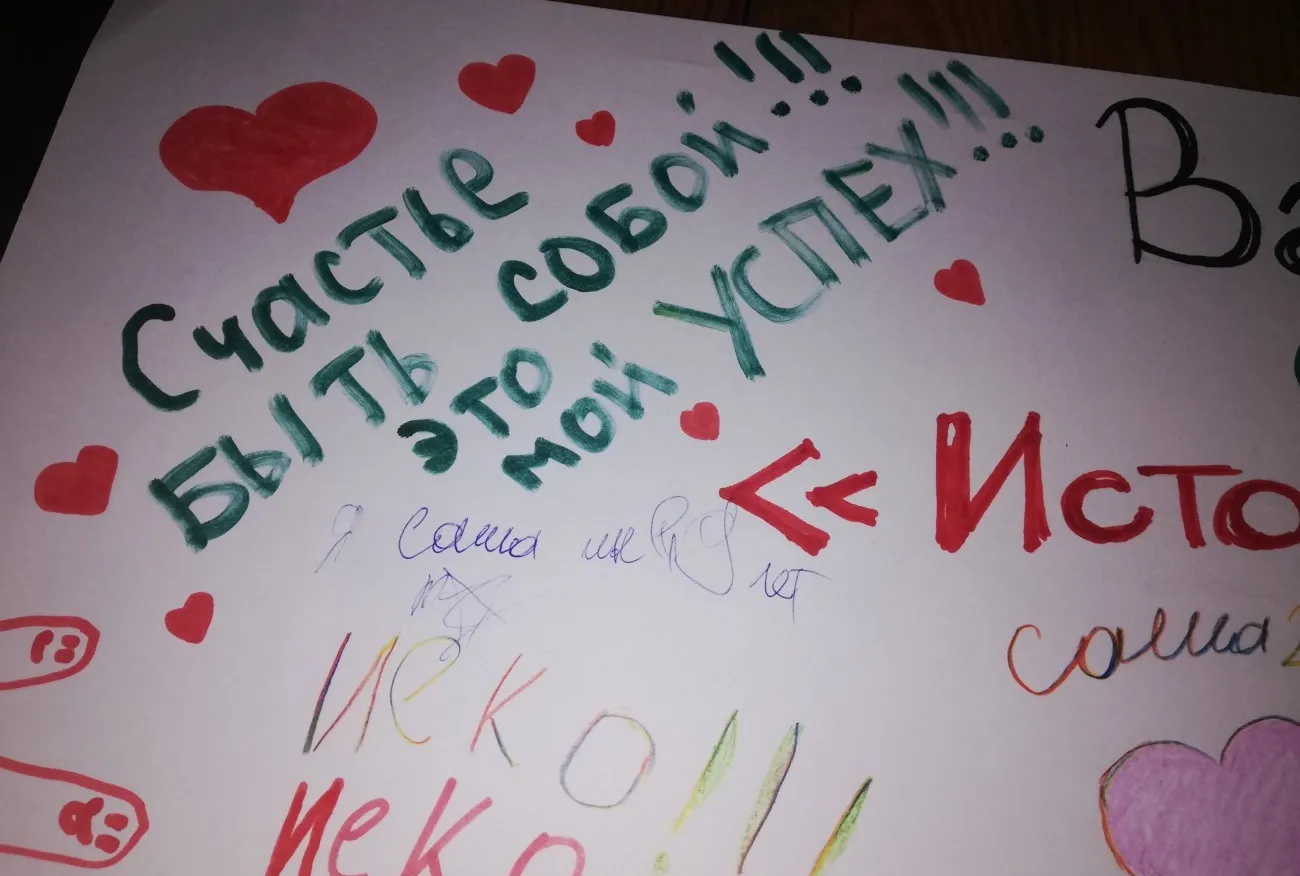 Счастье
БЫТЬ СОБОЙ!!!
ЭТО
МОЙ УСПЕХ!!!
Ва
<< Исто
Я Саша мне 9
лет
саша 2
ИСКО!!!
ИСКО